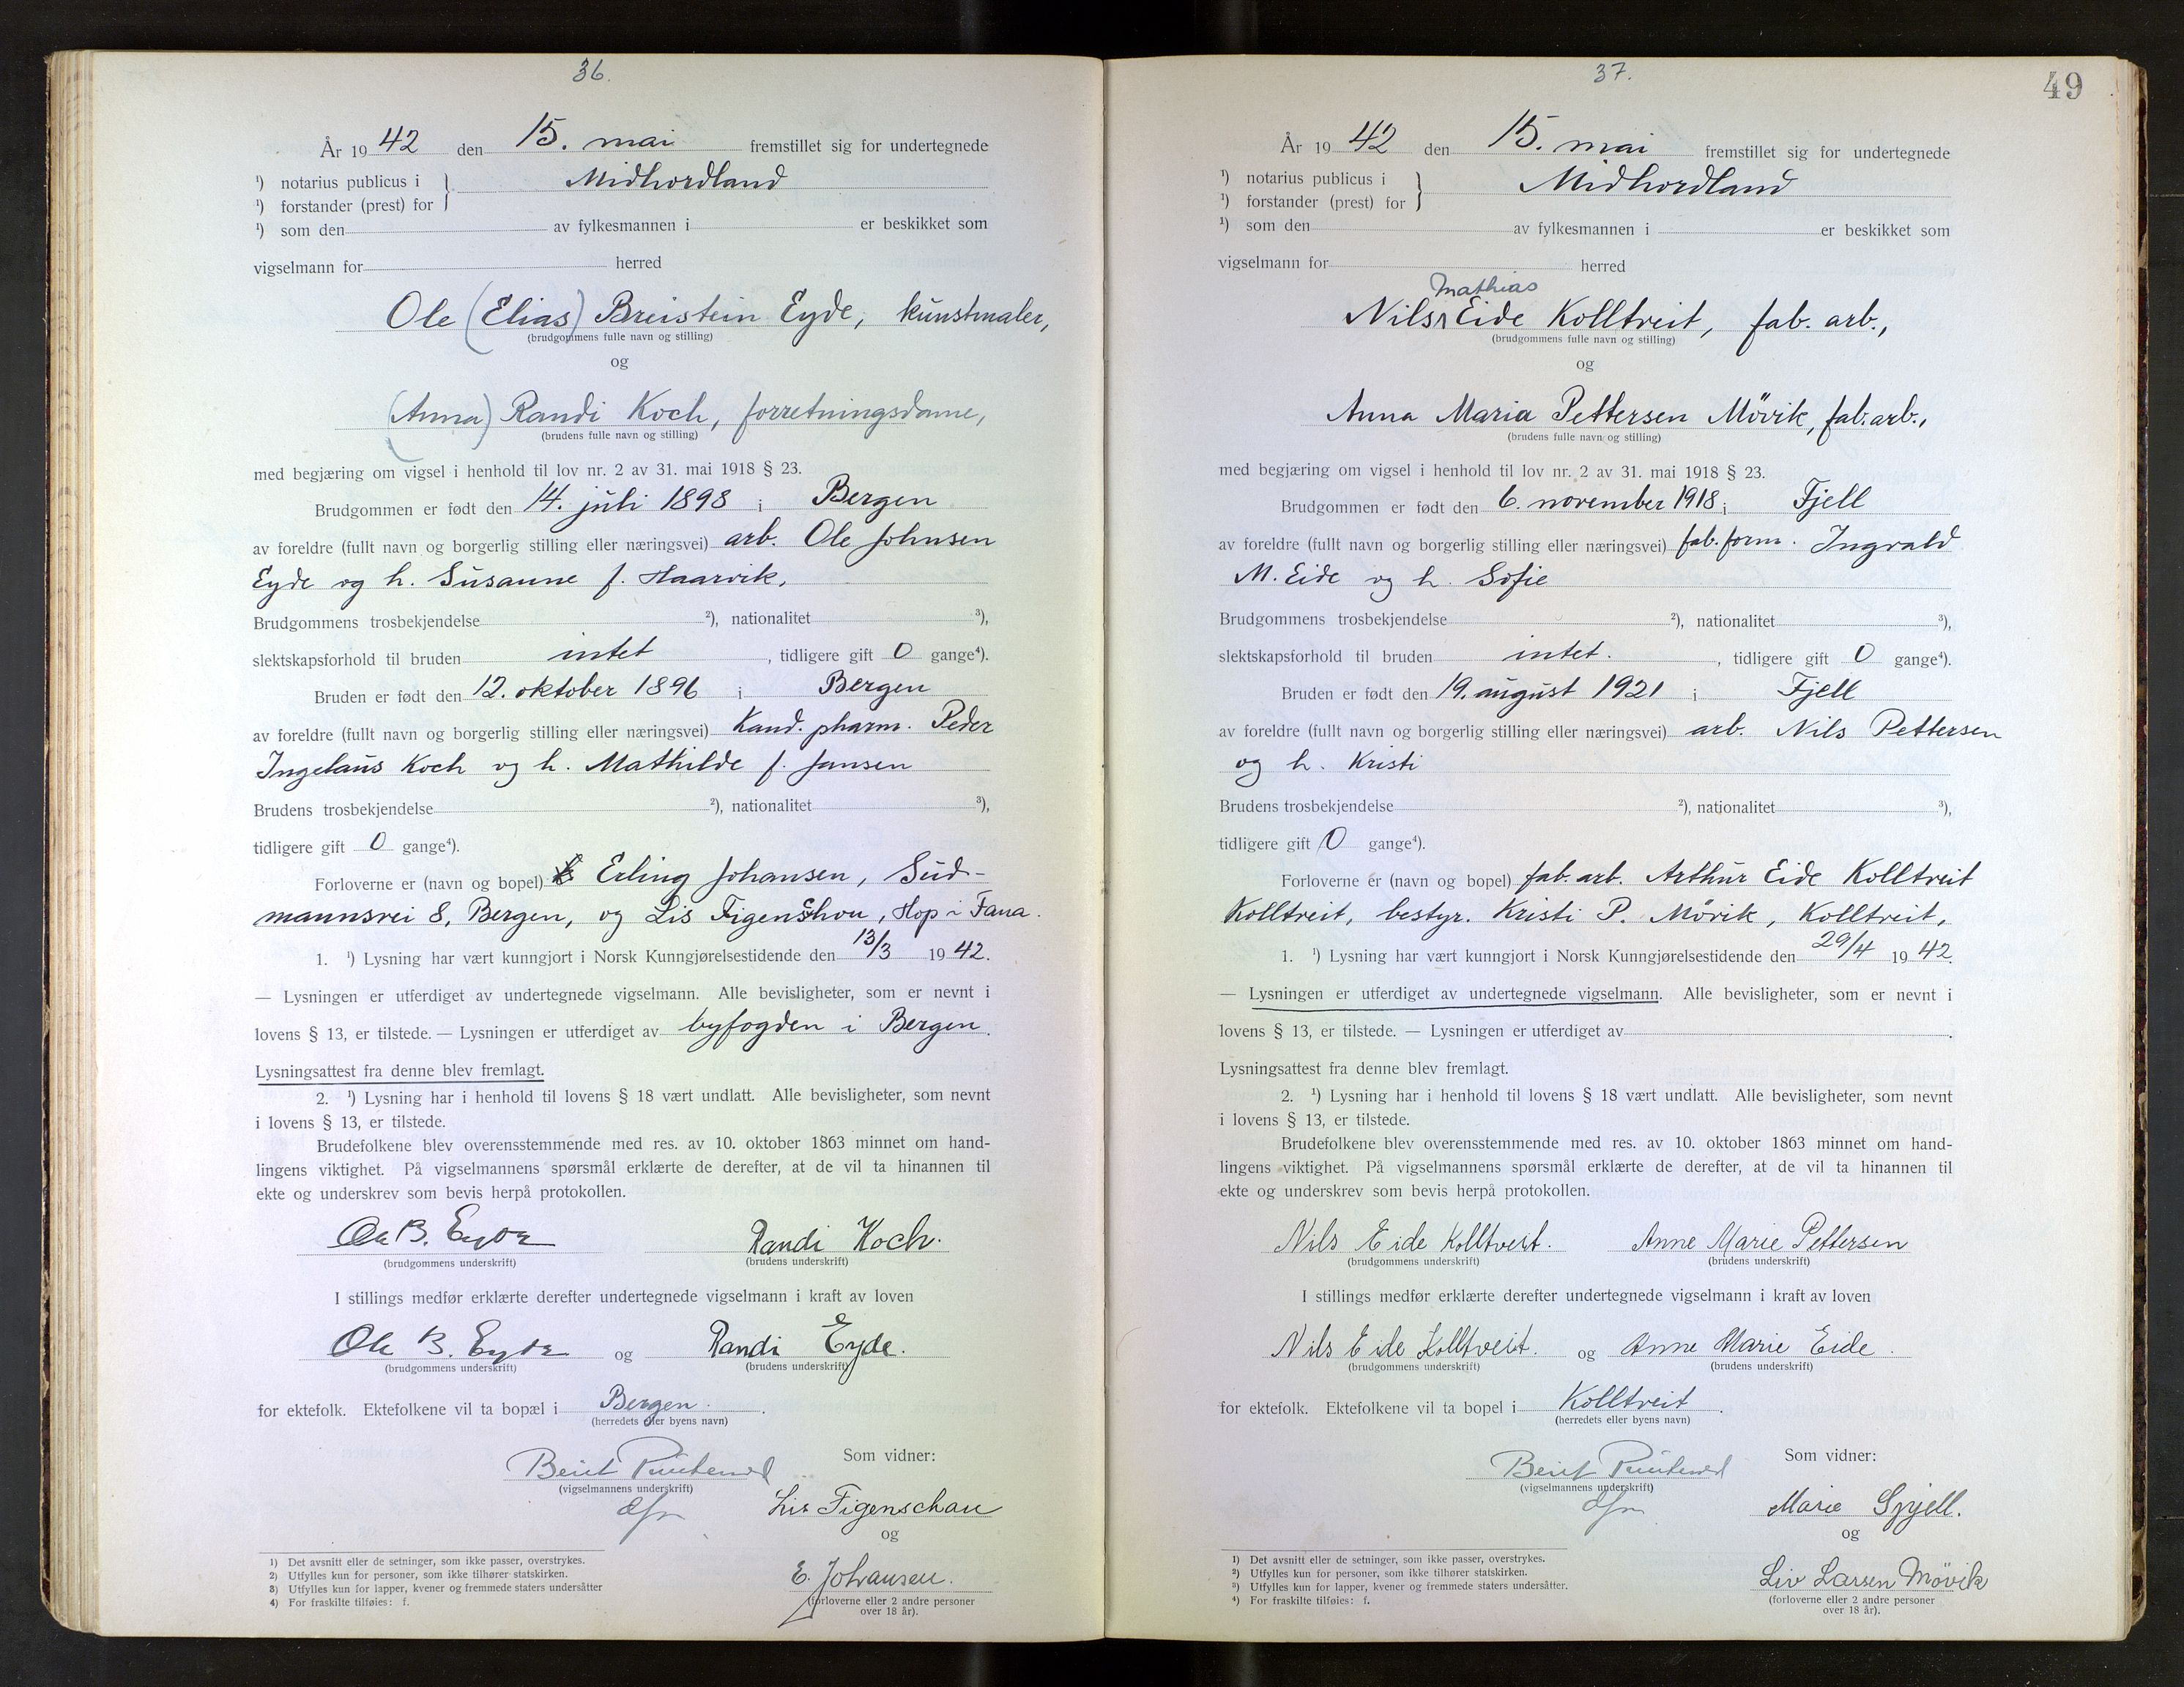 36.
År 19 42 den 15. mai fremstillet sig for undertegnede
¹) notarius publicus i } Midhordland
¹) forstander (prest) for
¹) som den av fylkesmannen i er beskikket som
vigselmann for herred
Ole (Elias) Breistein Eyde, kunstmaler,
(brudgommens fulle navn og stilling)
og
(Anna) Randi Koch, forretningsdame,
(brudens fulle navn og stilling)
med begjæring om vigsel i henhold til lov nr. 2 av 31. mai 1918 § 23.
Brudgommen er født den 14. juli 1898 i Bergen
av foreldre (fullt navn og borgerlig stilling eller næringsvei) arb. Ole Johnsen
Eyde og h. Susanne f. Haarvik.
Brudgommens trosbekjendelse ²), nationalitet ³),
slektskapsforhold til bruden intet , tidligere gift 0 gange⁴).
Bruden er født den 12. oktober 1896 i Bergen
av foreldre (fullt navn og borgerlig stilling eller næringsvei) Kand. pharm. Peder
Ingelaus Koch og h. Mathilde f. Jansen
Brudens trosbekjendelse ²), nationalitet ³),
tidligere gift 0 gange⁴).
Forloverne er (navn og bopel) Erling Johansen, Sud-
mannsvei 8, Bergen, og Lis Figenschou, Hop i Fana.
1. ¹) Lysning har vært kunngjort i Norsk Kunngjørelsestidende den 13/3 19 42.
— Lysningen er utferdiget av undertegnede vigselmann. Alle bevisligheter, som er nevnt i
lovens § 13, er tilstede. — Lysningen er utferdiget av byfogden i Bergen.
Lysningsattest fra denne blev fremlagt.
2. ¹) Lysning har i henhold til lovens § 18 vært undlatt. Alle bevisligheter, som nevnt
i lovens § 13, er tilstede.
Brudefolkene blev overensstemmende med res. av 10. oktober 1863 minnet om hand-
lingens viktighet. På vigselmannens spørsmål erklærte de derefter, at de vil ta hinannen til
ekte og underskrev som bevis herpå protokollen.
Ole B. Eyde Randi Koch.
(brudgommens underskrift) (brudens underskrift)
I stillings medfør erklærte derefter undertegnede vigselmann i kraft av loven
Ole B. Eyde og Randi Eyde.
(brudgommens underskrift) (brudens underskrift)
for ektefolk. Ektefolkene vil ta bopæl i Bergen.
(herredets eller byens navn)
Som vidner:
Berit
(vigselmannens underskrift)
Lis Figenschau
og
E. Johansen.
(forloverne eller 2 andre personer
over 18 år).
1) Det avsnitt eller de setninger, som ikke passer, overstrykes.
2) Utfylles kun for personer, som ikke tilhører statskirken.
3) Utfylles kun for lapper, kvener og fremmede staters undersåtter
4) For fraskilte tilføies: f.
37.
49
År 19 42 den 15. mai fremstillet sig for undertegnede
¹) notarius publicus i } Midhordland
¹) forstander (prest) for
¹) som den av fylkesmannen i er beskikket som
vigselmann for herred
Mathias
Nils Eide Kolltveit, fab. arb.,
(brudgommens fulle navn og stilling)
og
Anna Maria Pettersen Mövik, fab. arb.,
(brudens fulle navn og stilling)
med begjæring om vigsel i henhold til lov nr. 2 av 31. mai 1918 § 23.
Brudgommen er født den 6. november 1918 i Fjell
av foreldre (fullt navn og borgerlig stilling eller næringsvei) fab. form. Ingvald
M. Eide og h. Sofie
Brudgommens trosbekjendelse ²), nationalitet ³),
slektskapsforhold til bruden intet. , tidligere gift 0 gange⁴).
Bruden er født den 19. august 1921 i Fjell
av foreldre (fullt navn og borgerlig stilling eller næringsvei) arb. Nils Pettersen
og h. Kristi
Brudens trosbekjendelse ²), nationalitet ³),
tidligere gift 0 gange⁴).
Forloverne er (navn og bopel) fab. arb. Arthur Eide Kolltveit
Kolltveit, bestyr. Kristi P. Mövik, Kolltveit,
1. ¹) Lysning har vært kunngjort i Norsk Kunngjørelsestidende den 29/4 19 42.
— Lysningen er utferdiget av undertegnede vigselmann. Alle bevisligheter, som er nevnt i
lovens § 13, er tilstede. — Lysningen er utferdiget av .
Lysningsattest fra denne blev fremlagt.
2. ¹) Lysning har i henhold til lovens § 18 vært undlatt. Alle bevisligheter, som nevnt
i lovens § 13, er tilstede.
Brudefolkene blev overensstemmende med res. av 10. oktober 1863 minnet om hand-
lingens viktighet. På vigselmannens spørsmål erklærte de derefter, at de vil ta hinannen til
ekte og underskrev som bevis herpå protokollen.
Nils Eide Kolltveit. Anne Marie Pettersen
(brudgommens underskrift) (brudens underskrift)
I stillings medfør erklærte derefter undertegnede vigselmann i kraft av loven
Nils Eide Kolltveit. og Anne Marie Eide.
(brudgommens underskrift) (brudens underskrift)
for ektefolk. Ektefolkene vil ta bopel i Kolltveit.
(herredets eller byens navn)
Som vidner:
Berit
(vigselmannens underskrift)
Marie
og
Liv Larsen Mövik
(forloverne eller 2 andre personer
over 18 år).
¹) Det avsnitt eller de setninger, som ikke passer, overstrykes.
²) Utfylles kun for personer, som ikke tilhører statskirken.
³) Utfylles kun for lapper, kvener og fremmede staters undersåtter.
⁴) For fraskilte tilføies: f.